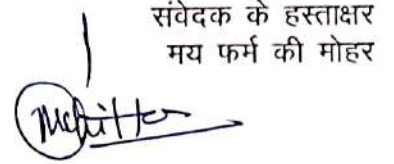 संवेदक के हस्ताक्षर
मय फर्म की मोहर